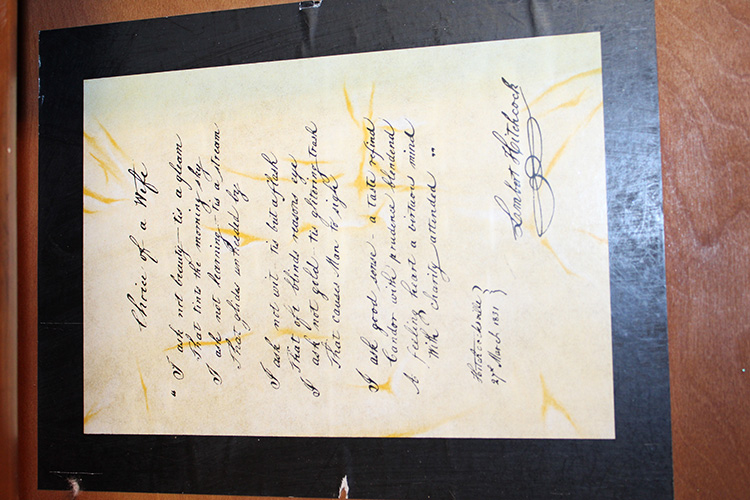 Choice of a Wife
"I ask not beauty—'tis a gleam
That tints the morning sky
I ask not learning—'tis a stream
That glides unheeded by.
I ask not wit - tis but a flash
That oft blinds reasons eye
I ask not gold - tis glittering trash
That causes Man to sigh
I ask good sense - a taste refind
Candor with prudence blendind
A feeling heart a virtuous mind
With Charity attended "
Hitchcocksville
March 1831
Lambert Hitchcock